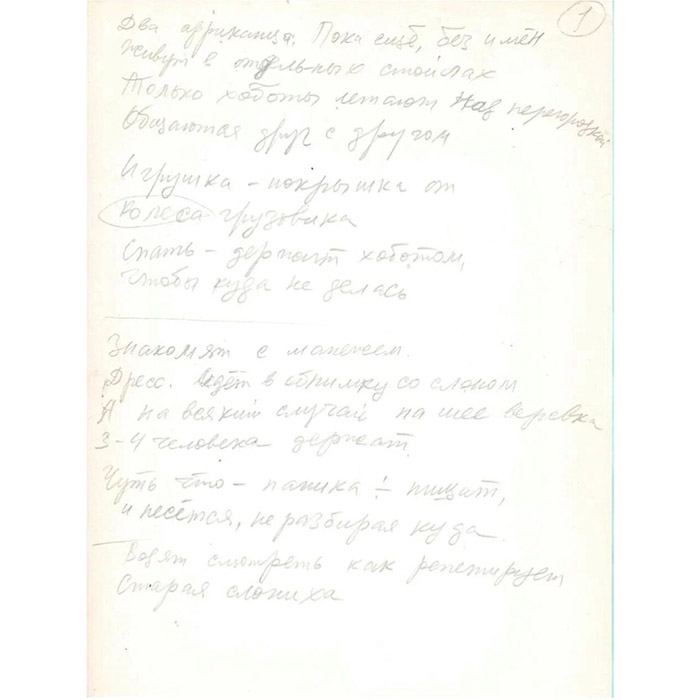 1
Два африканца. Пока ещё, без имён
Живут в отдельных стойлах
Только хоботы летают над перегородкой
Общаются друг с другом
Игрушка - покрышка от
колеса грузовика
Спать - держит хоботом,
чтобы куда не делась
Знакомят с манежем.
Дресс. ведёт в обнимку со слоном
А на всякий случай на шее верёвка
3-4 человека держат.
Чуть что - паника! - пищит,
и несётся, не разбирая куда.
Водят смотреть как репетирует
Старая слониха